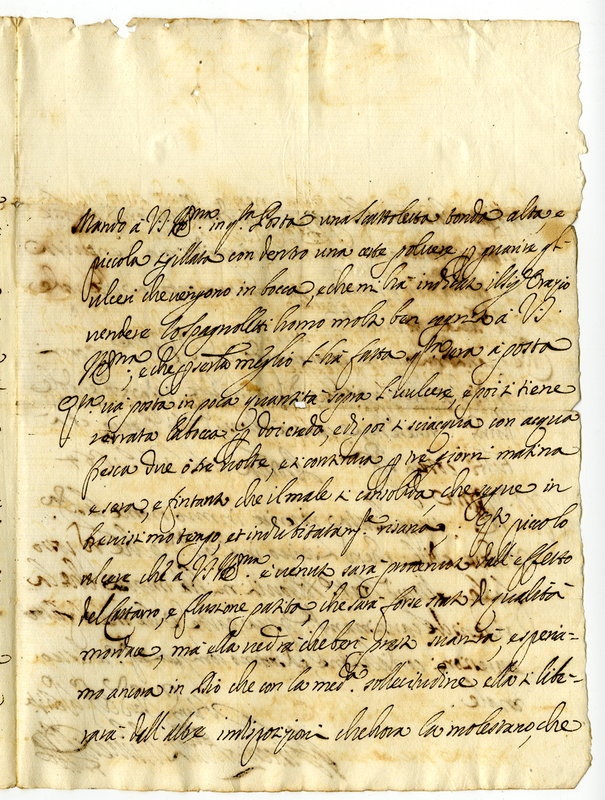 Mando à V. in q.ta Posta una Scattoletta tonda alta, e
piccola sigillata con dentro una certa polvere p guarire gl'
ulceri che vengono in bocca, e che mi hà il Sig. Orazio
vendere lo homo molto ben à V.
e che p meglio l'hà fatta q.ta sera à posta
Q.ta và posta in poca quantità sopra l'ulcere, e poi si tiene
serrata la bocca p doi credi, e di poi si sciacqua con acqua
fresca due ò tre volte, e si continua p tre giorni matina
e sera, e fintanto che il male si consolida, che segue in
brevissimo tempo, et indubitatam.te risana. piccolo
ulcere che à V. è venuto, sarà dall'effetto
del Cataro, e flussione patita, che sarà forse stata di qualità
mordace, mà ella vedrà che ben presto svanirà, e speria=
mo ancora in Dio che con la med.a sollecitudine ella si libe=
rarà dall'altre indisposizioni che hora la molestano, che